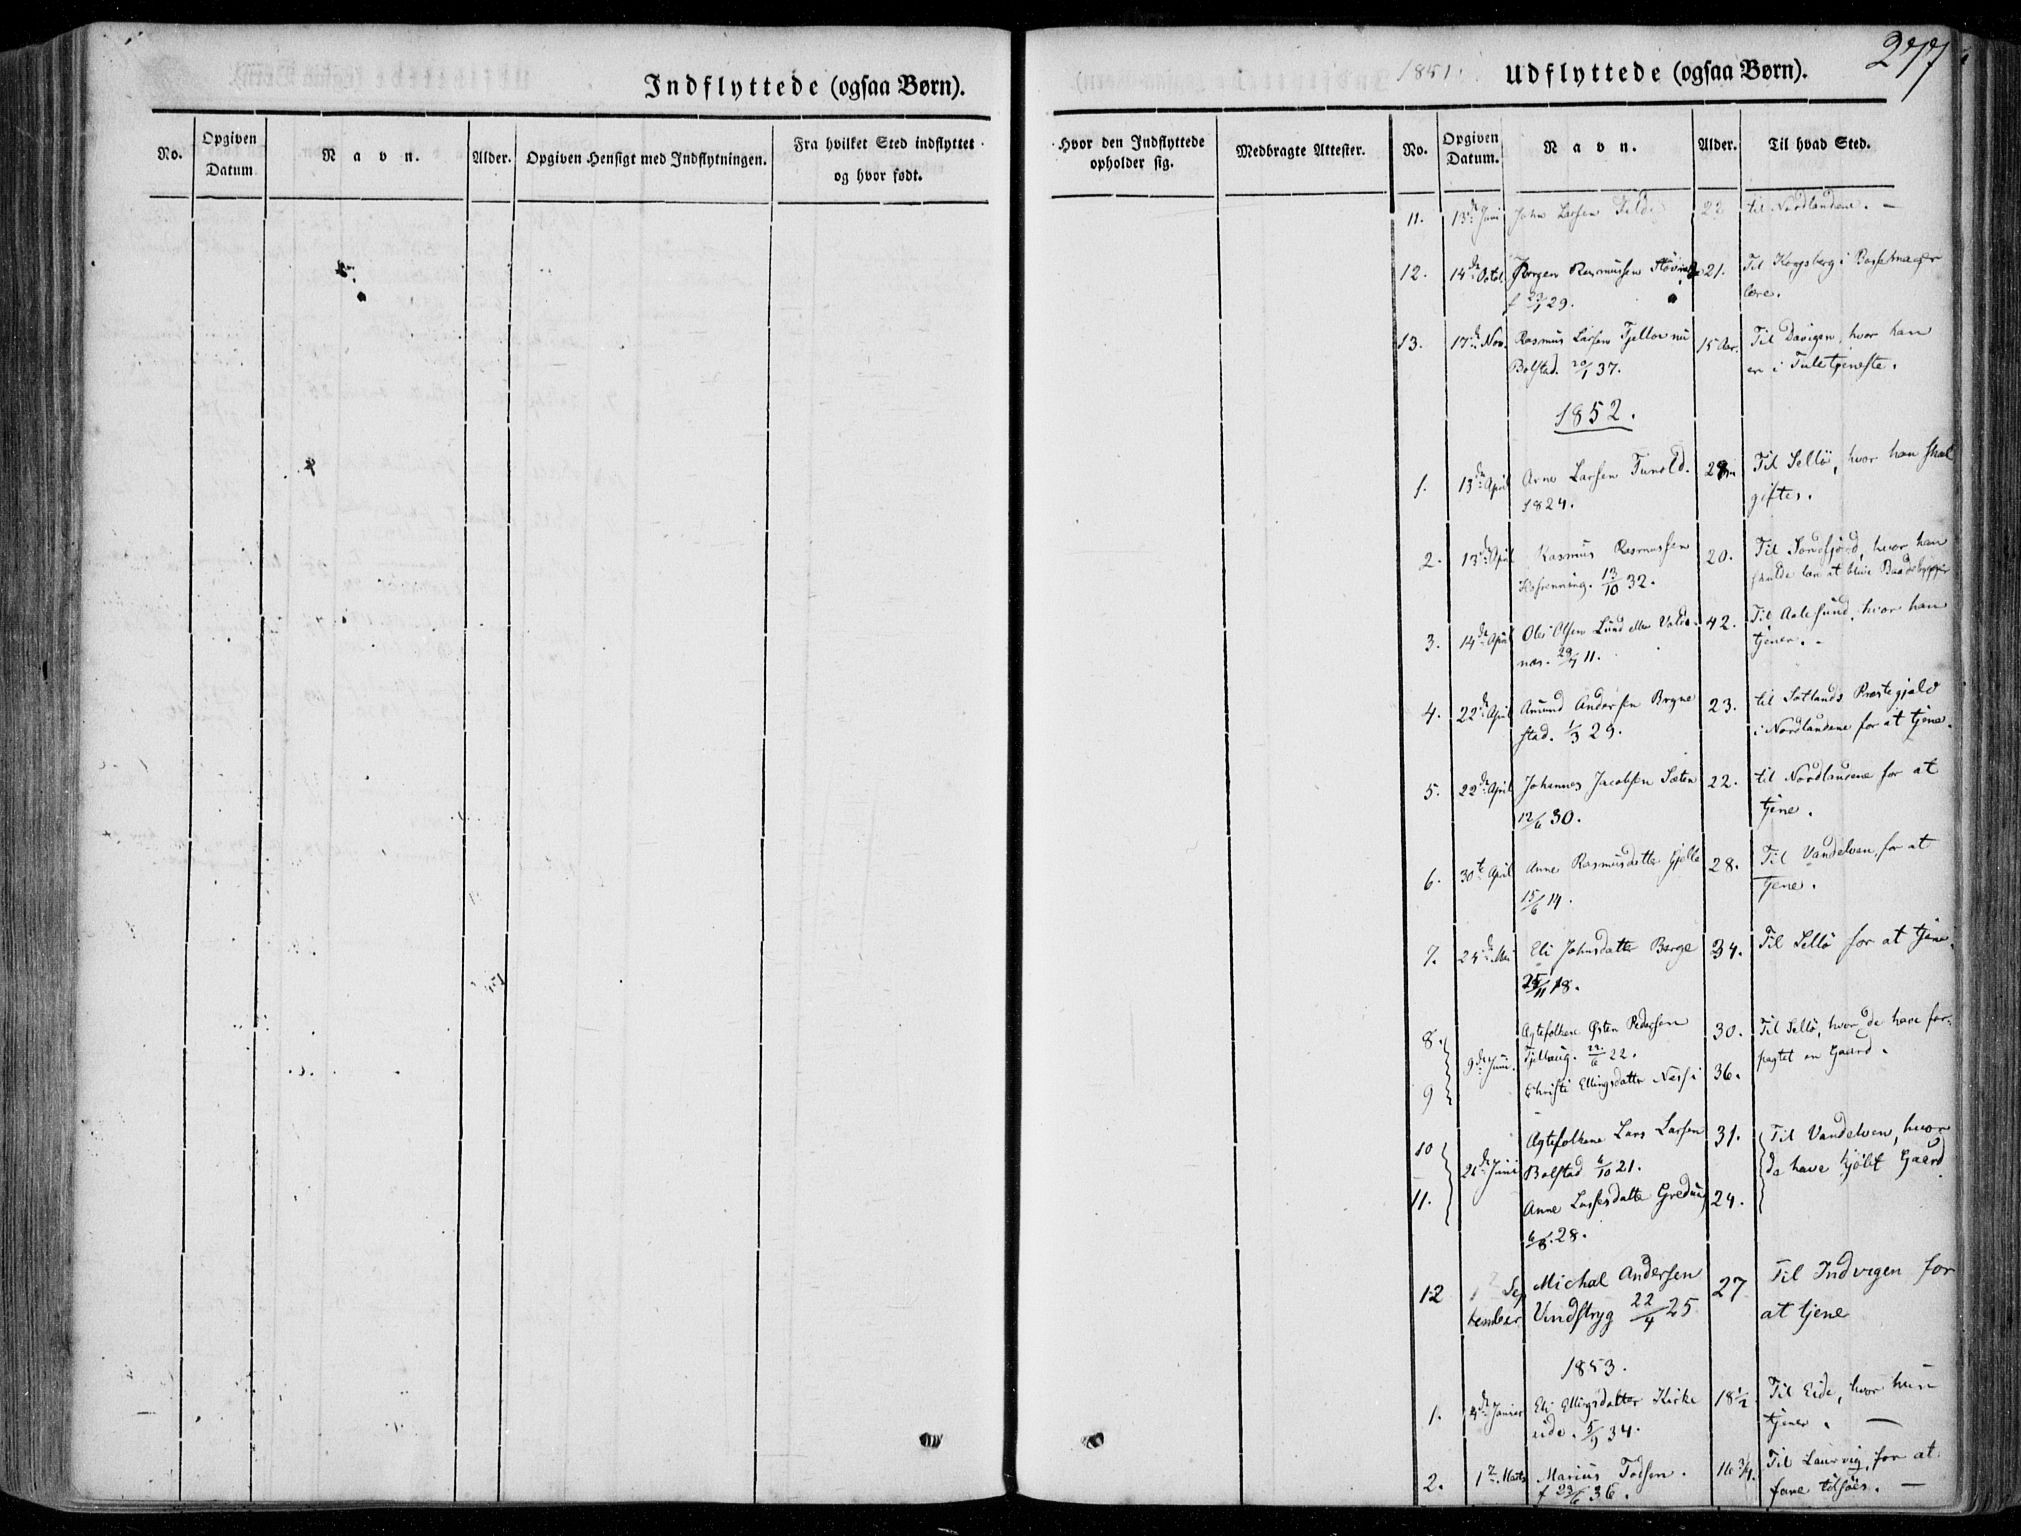 Indflyttede (ogsaa Børn).
No.
Opgiven Datum
Navn.
Alder.
Opgiven Hensigt med Indflytningen.
Fra hvilket Sted indflyttet og hvor født.
277
1851.
Udflyttede (ogsaa Børn).
Hvor den Indflyttede opholder sig.
Medbragte Attester.
No.
Opgiven Datum.
Navn.
Alder.
Til hvad Sted.
11. 13de Juni John Larsen 22 til Nordlandene. —
12. 14de Octob. Jörgen Rasmussen 21. Til Kongsberg i Bössemager
f 29. lære.
13. 17de Nov. Rasmus Larsen Tjellor nu 15 Aar. Til Davigen, hvor han
Bolstad. 20/1 37. er i Tjeneste.
1852.
1. 13de April Arne Larsen Tunold. 28 Til Sellö, hvor han skal
1824. giftes.
2. 13de April Rasmus Rasmussen 20. Til Söndfjord, hvor han
13/10 32. skulde lære at blive Baadebygger
3. 14de April Ole Olsen Lund eller Valde- 42. Til Aalesund, hvor han
næs. 29/7 11. tjener. -
4. 22de April Amund Andersen Bryne 23. til Saltlands Præstegjeld
stad. 1/3 29. i Nordlandene for at tjene.
5. 22de April Johannes Jacobsen Sæten 22. til Nordlandene for at
12/6 30. tjene.
6. 30te April Anne Rasmusdatter Gjelle 28. Til Vandelven, for at
15/6 14. tjene.
7. 24de Mai Eli Johnsdatter Berge 34. Til Sellö for at tjene.
25/11 18.
8. Ægtefolkene Østen Pedersen 30. Til Sellö, hvor de have for-
9de Juni. Tjellaug. 22/6 22. pagtet en Gaard.
9 Christi Ellingsdatter Nesse 36.
10 Ægtefolkene Lars Larsen 31. Til Vandelven, hvor
26de Juni Bolstad 6/10 21. de have kjöbt Gaard
11. Anne Lassesdatter 24.
6/8 28.
12 Sep Michal Andersen 27 Til Indvigen for
tember Vindstryg 22/4 25 at tjene
1853.
1. 4de Januar Eli Ellingsdatter Kirke 18 1/2 Til Eide, hvor hun
eide. 5/9 34. tjener. —
2. 1ste Marts Marius Tolsen. 16 3/4. Til Laurvig, for at
f 23/6 36. fare tilsöes. —